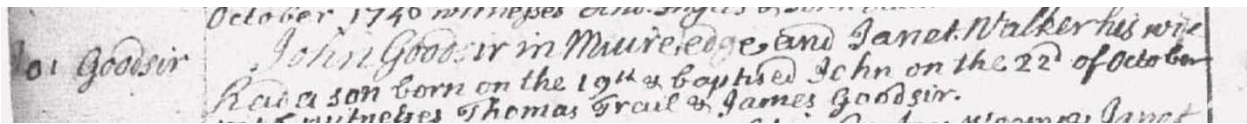 October 1746 witnesses
Joi Goodsir John Goodsir in Muireedge and Janet Walker his wife
had a son born on the 19th & baptised John on the 22d of October
witnesses Thomas Trail & James Goodsir.
Janet